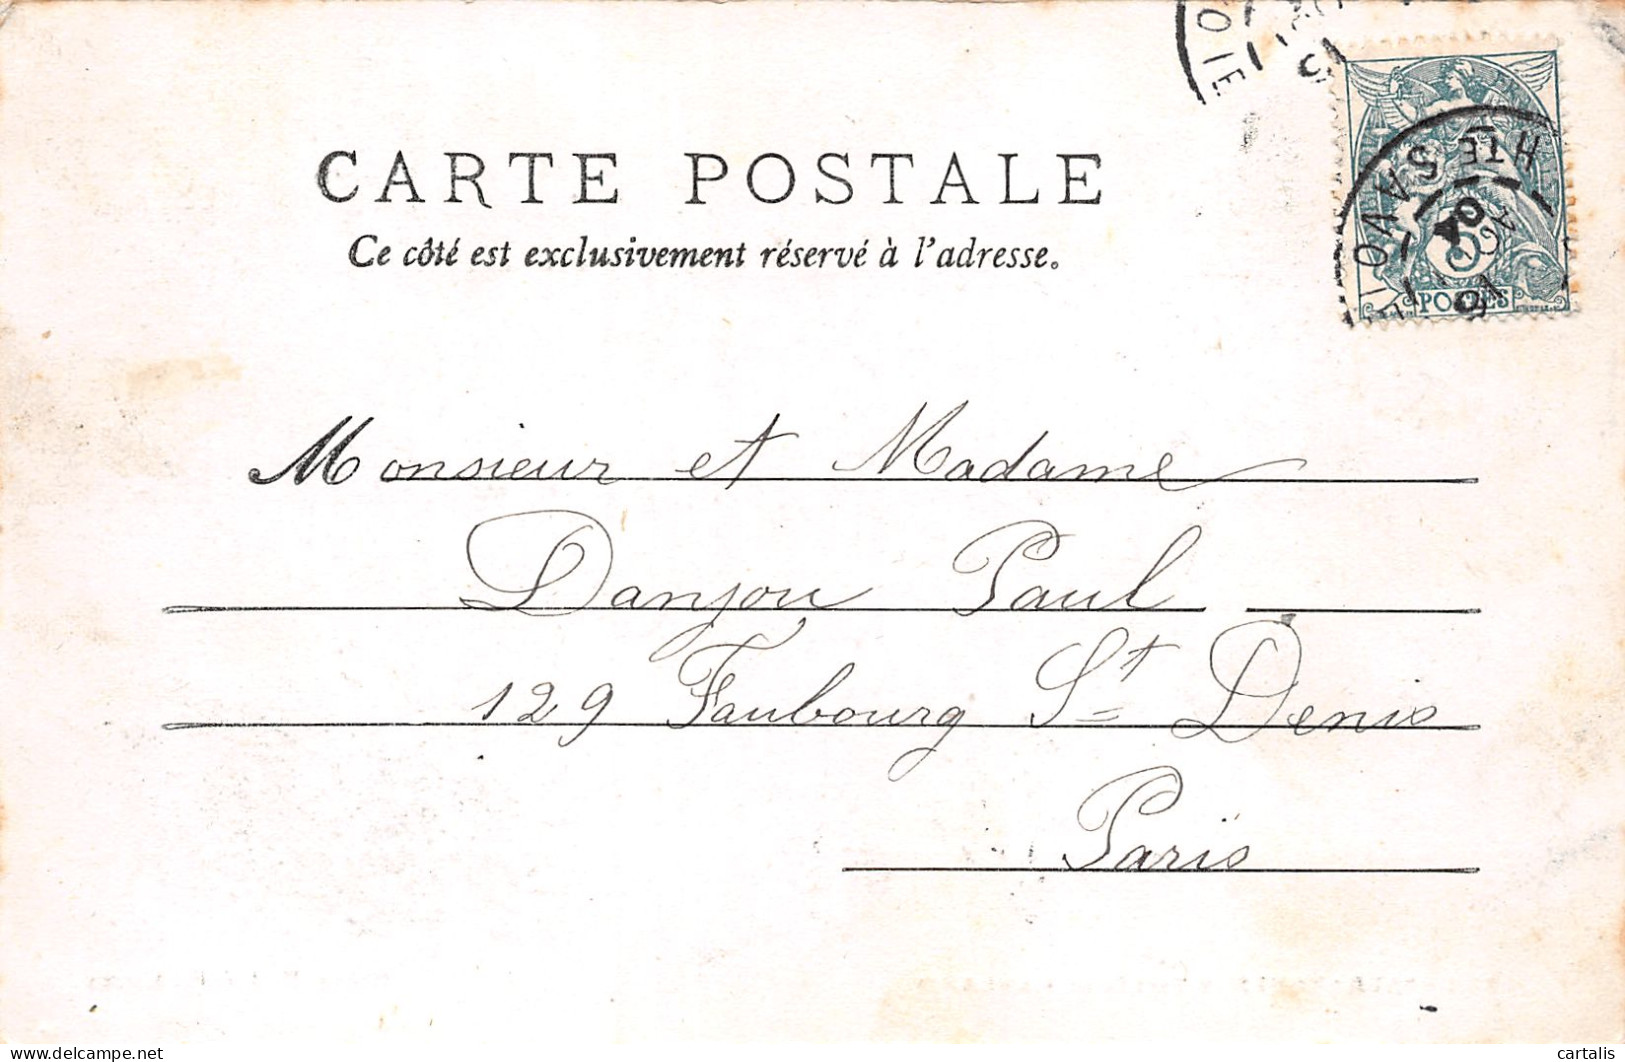 CARTE POSTALE
Ce côté est exclusivement réservé à l'adresse.
HTE SAVOI
POSTES
OIE
Monsieur et Madame
Danjou Paul
129 Faubourg St Denis
Paris
cartalis
delcampe.net